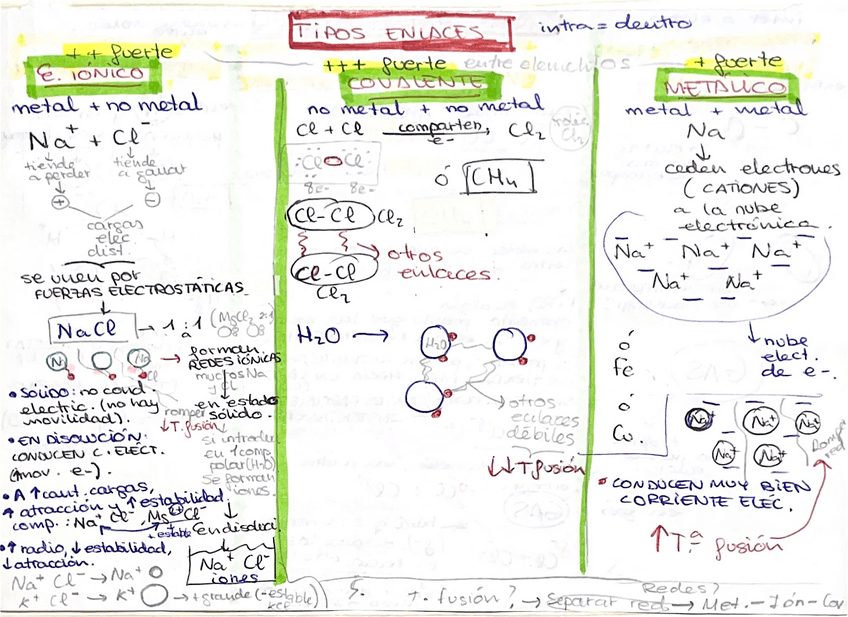 TIPOS ENLACES
intra = dentro
++ fuerte
E. IÓNICO
metal + no metal
Na⁺ + Cl⁻
tiende tiende
a perder a ganar
+ −
cargas
elec
dist.
se unen por
FUERZAS ELECTROSTÁTICAS
NaCl → 1:1 (MgCl₂ 2:1)
a
Na Na
Cl
→ forman
REDES IÓNICAS
muchos Na
Cl
en estado
sólido.
romper
↓T.fusión
• SÓLIDO: no cond.
electric. (no hay
movilidad).
• EN DISOLUCIÓN:
CONDUCEN C. ELECT.
(mov. e-).
si introduc
en 1 comp.
polar (H₂O)
se forman
iones.
• A ↑ cant. cargas,
↑ atracción y ↑ estabilidad
comp.: Na⁺ Cl⁻, Mg²⁺ Cl⁻
+ estable
En disoluci.
• ↑ radio, ↓ estabilidad,
↓ atracción.
Na⁺ Cl⁻
iones
Na⁺ Cl⁻ → Na⁺
K⁺ Cl⁻ → K⁺ → + grande (- estable)
KCl
+++ fuerte entre elementos
COVALENTE
no metal + no metal
Cl + Cl comparten Cl₂
e-
Cl Cl
8e- 8e-
ó CH₄
Cl-Cl Cl₂
→ otros
enlaces.
Cl-Cl
Cl₂
H₂O → H₂O
→ otros
enlaces
débiles
↓↓ T fusión
+ fuerte
METÁLICO
metal + metal
Na
↓
ceden electrones
(CATIONES)
a la nube
electrónica.
Na⁺ Na⁺ Na⁺
Na⁺ Na⁺
↓ nube
elect.
de e-.
ó
Fe
ó
Cu.
Na⁺ Na⁺ Na⁺
Na⁺ Na⁺
Romper
red
• CONDUCEN MUY BIEN
CORRIENTE ELEC.
↑ Tª fusión
Redes?
T. fusión? → Separar red → Met. - Ión - Cov